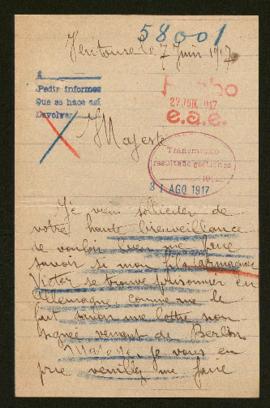 58001
le 7 Juin 1917
Pedir informes
Que se hace así
Devolver
27 JUN. 1917
e.a.e.
Majesté
Transmitido
resultado gestiones
31 AGO 1917
Je viens solliciter de
votre haute bienveillance
de vouloir bien me faire
savoir si mon fils
Victor se trouve prisonnier en
Allemagne comme me le
fait une lettre non
de Berlin
je vous en
prie veuillez me faire